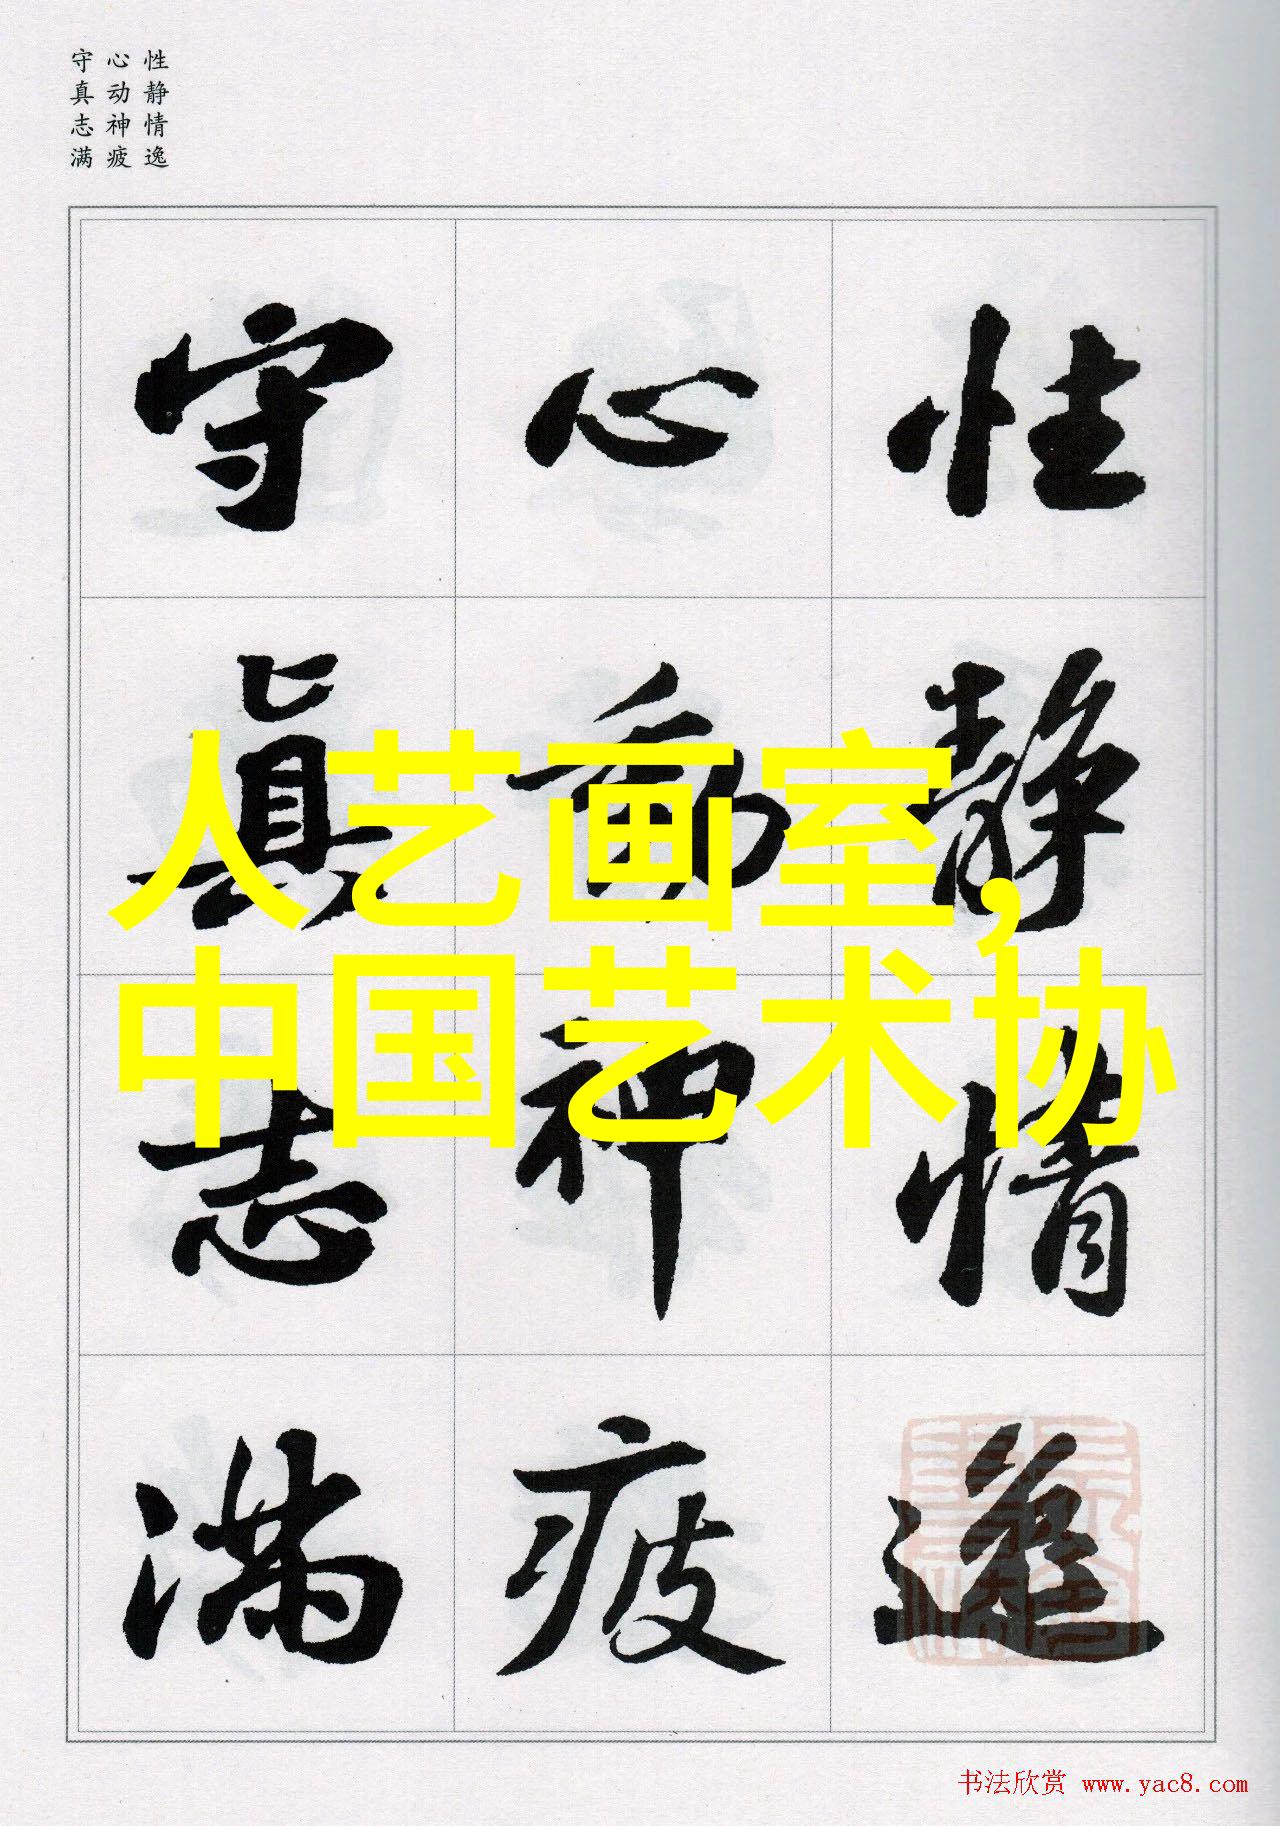 性静情逸
心动神疲
守真志满
性静情逸
心動神疲
守真志满
人艺画室,
中国艺术协
书法欣赏 www.yac8.com